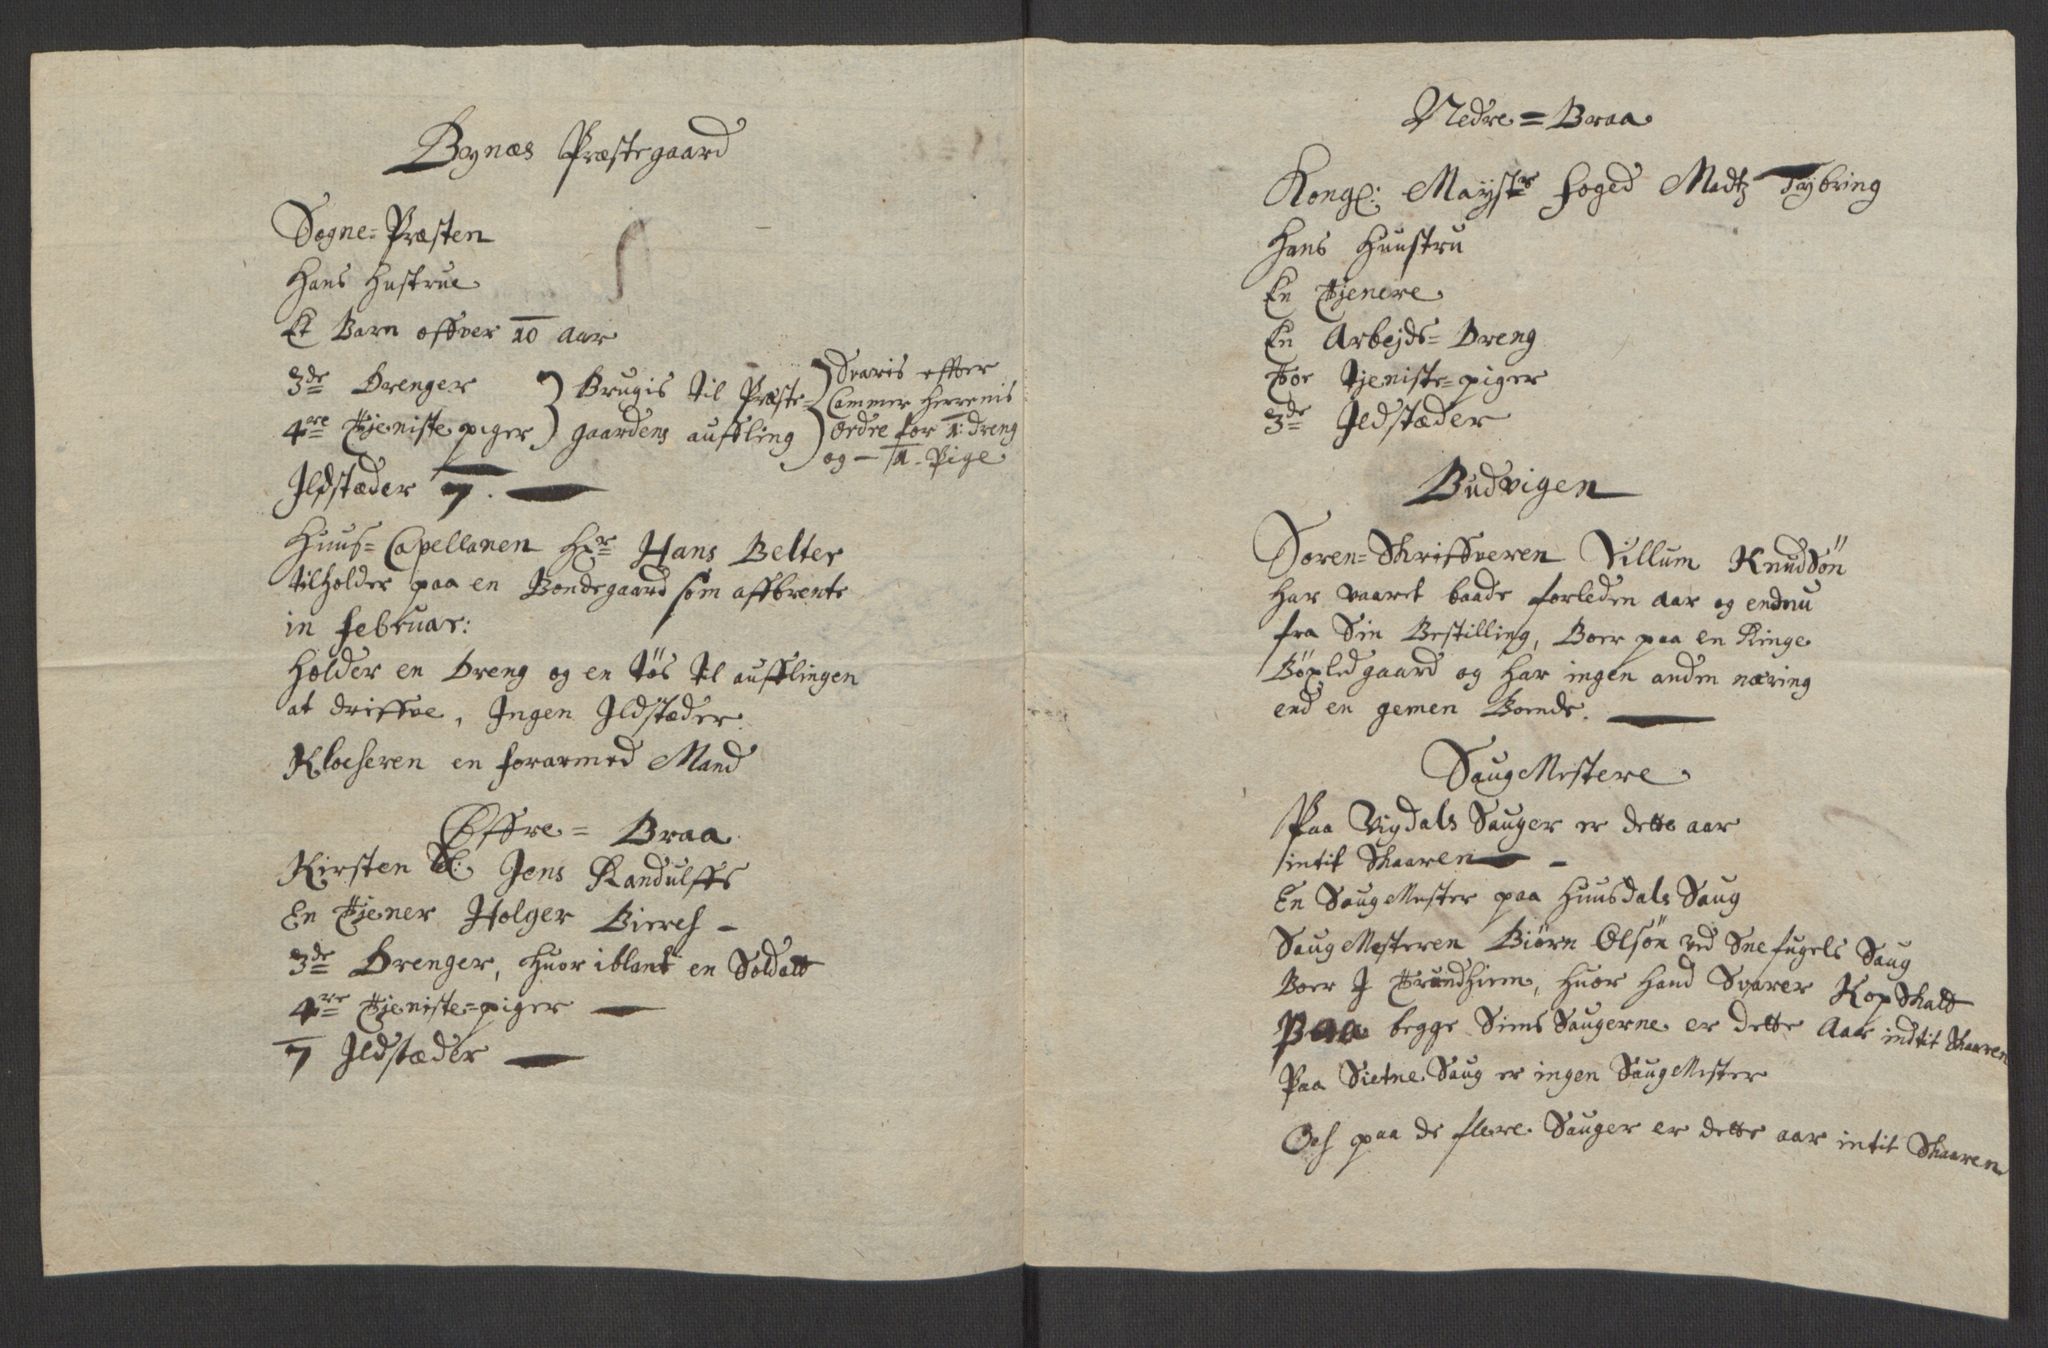 Bynæs Præstegaard
Sogne=Præsten
Hans Hustrue
Et Barn offver 10 Aar
3de Drenger
4re Tjeniste piger
Brugis til Præste=
gaardens auffling
Svaris efter
Cammer Herrenis
Ordre for 1: dreng
og — 1. Pige
Ildstæder 7.
Huus=Capellanen Hr Hans Belter
tilholder paa en Bondegaard som affbrente
in Februar:
Holder en Dreng og en tøs til aufflingen
at driffve, Ingen Ildstæder
Klocheren en forarmed Mand
Øffre= Braa
Kirsten Sl: Jens Randulffs
En Tjener Holger Bierch –
3de Drenger, huor iblant en Soldatt
4re Tjeniste=piger —
7 Ildstæder —
Nedre=Braa
Kongl: Mayst:s foged Madtz Tybring
Hans Huustru
En Tjenere
En Arbejds=Dreng
Toe tjeniste=piger
3de Ildstæder
Budvigen
Soren=Skriffveren Villum Knudsøn
har vaaret baade forleden aar og endnu
fra Sin Bestilling, Boer paa en Ringe
gaard og har ingen anden næring
end en gemen Bonde. —
SaugMestere
Paa Vigdals Sauger er dette aar
intit Skaaren –
En SaugMester paa Huusdals Saug
SaugMesteren Biørn Olsøn ved Snefugels Saug
Boer I Trundhiem, huor hand Svarer Kopskatt
Paa begge Sims Saugerne er dette Aar indtit Skaaren
Paa Sietne Saug er ingen SaugMester
Och paa de flere Sauger er dette aar intit Skaaren